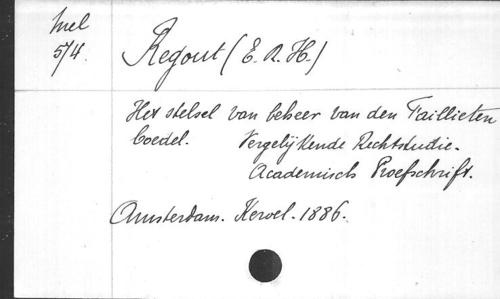 Mel
5/4.
Regout (E. R. H.)
Het stelsel van beheer van den Faillieten
boedel. Vergelijkende Rechtstudie.
Academisch Proefschrift.
Amsterdam. Kervel. 1886.